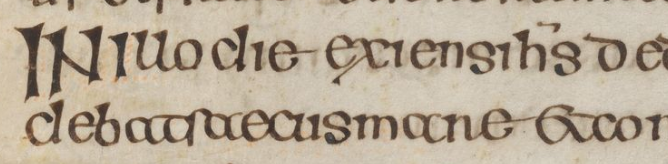 IN illo die exiens ih̅s de
debat saecus mare & con